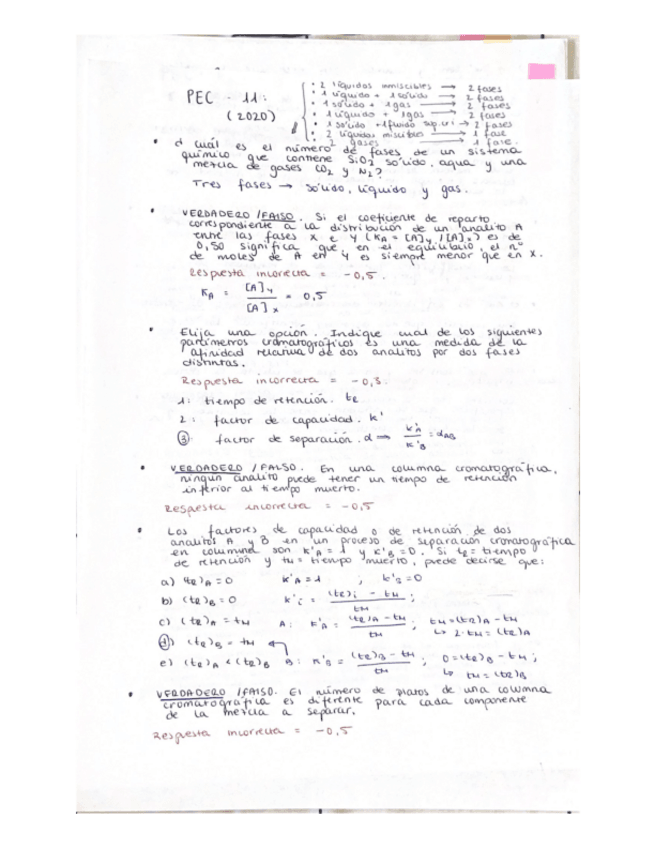 PEC - 11:
(2020)
• 2 líquidos inmiscibles → 2 fases
• 1 líquido + 1 sólido → 2 fases
• 1 sólido + 1 gas → 2 fases
• 1 líquido + 1 gas → 2 fases
• 1 sólido + 1 fluido → 2 fases
• 2 líquidos miscibles → 1 fase
2 gases → 1 fase.
• ¿ cuál es el número de fases de un sistema
químico que contiene SiO2 sólido, agua y una
mezcla de gases CO2 y N2?
Tres fases → sólido, líquido y gas.
• VERDADERO / FALSO. Si el coeficiente de reparto
correspondiente a la distribución de un analito A
entre las fases x e y (KA = [A]y / [A]x) es de
0,50 significa que, en el equilibrio, el nº
de moles de A en y es siempre menor que en x.
Respuesta incorrecta = -0,5.
KA = [A]y / [A]x = 0,5
• Elija una opción. Indique cual de los siguientes
parámetros cromatográficos es una medida de la
afinidad relativa de dos analitos por dos fases
distintas.
Respuesta incorrecta = -0,3.
1: tiempo de retención. tR
2: factor de capacidad. k'
3: factor de separación. α ⇒ k'A / k'B = αAB
• VERDADERO / FALSO. En una columna cromatográfica,
ningún analito puede tener un tiempo de retención
inferior al tiempo muerto.
Respuesta incorrecta = -0,5
• Los factores de capacidad o de retención de dos
analitos A y B en un proceso de separación cromatográfica
en columna son k'A = 1 y k'B = 0. Si tR = tiempo
de retención y tM = tiempo muerto, puede decirse que:
a) (tR)A = 0 k'A = 1 ; k'B = 0
b) (tR)B = 0 k'i = (tR)i - tM / tM ;
c) (tR)A = tM A: k'A = (tR)A - tM / tM ; tM = (tR)A - tM
↳ 2·tM = (tR)A
d) (tR)B = tM
e) (tR)A < (tR)B B: k'B = (tR)B - tM / tM ; 0 = (tR)B - tM ;
↳ tM = (tR)B
• VERDADERO / FALSO. El número de platos de una columna
cromatográfica es diferente para cada componente
de la mezcla a separar.
Respuesta incorrecta = -0,5